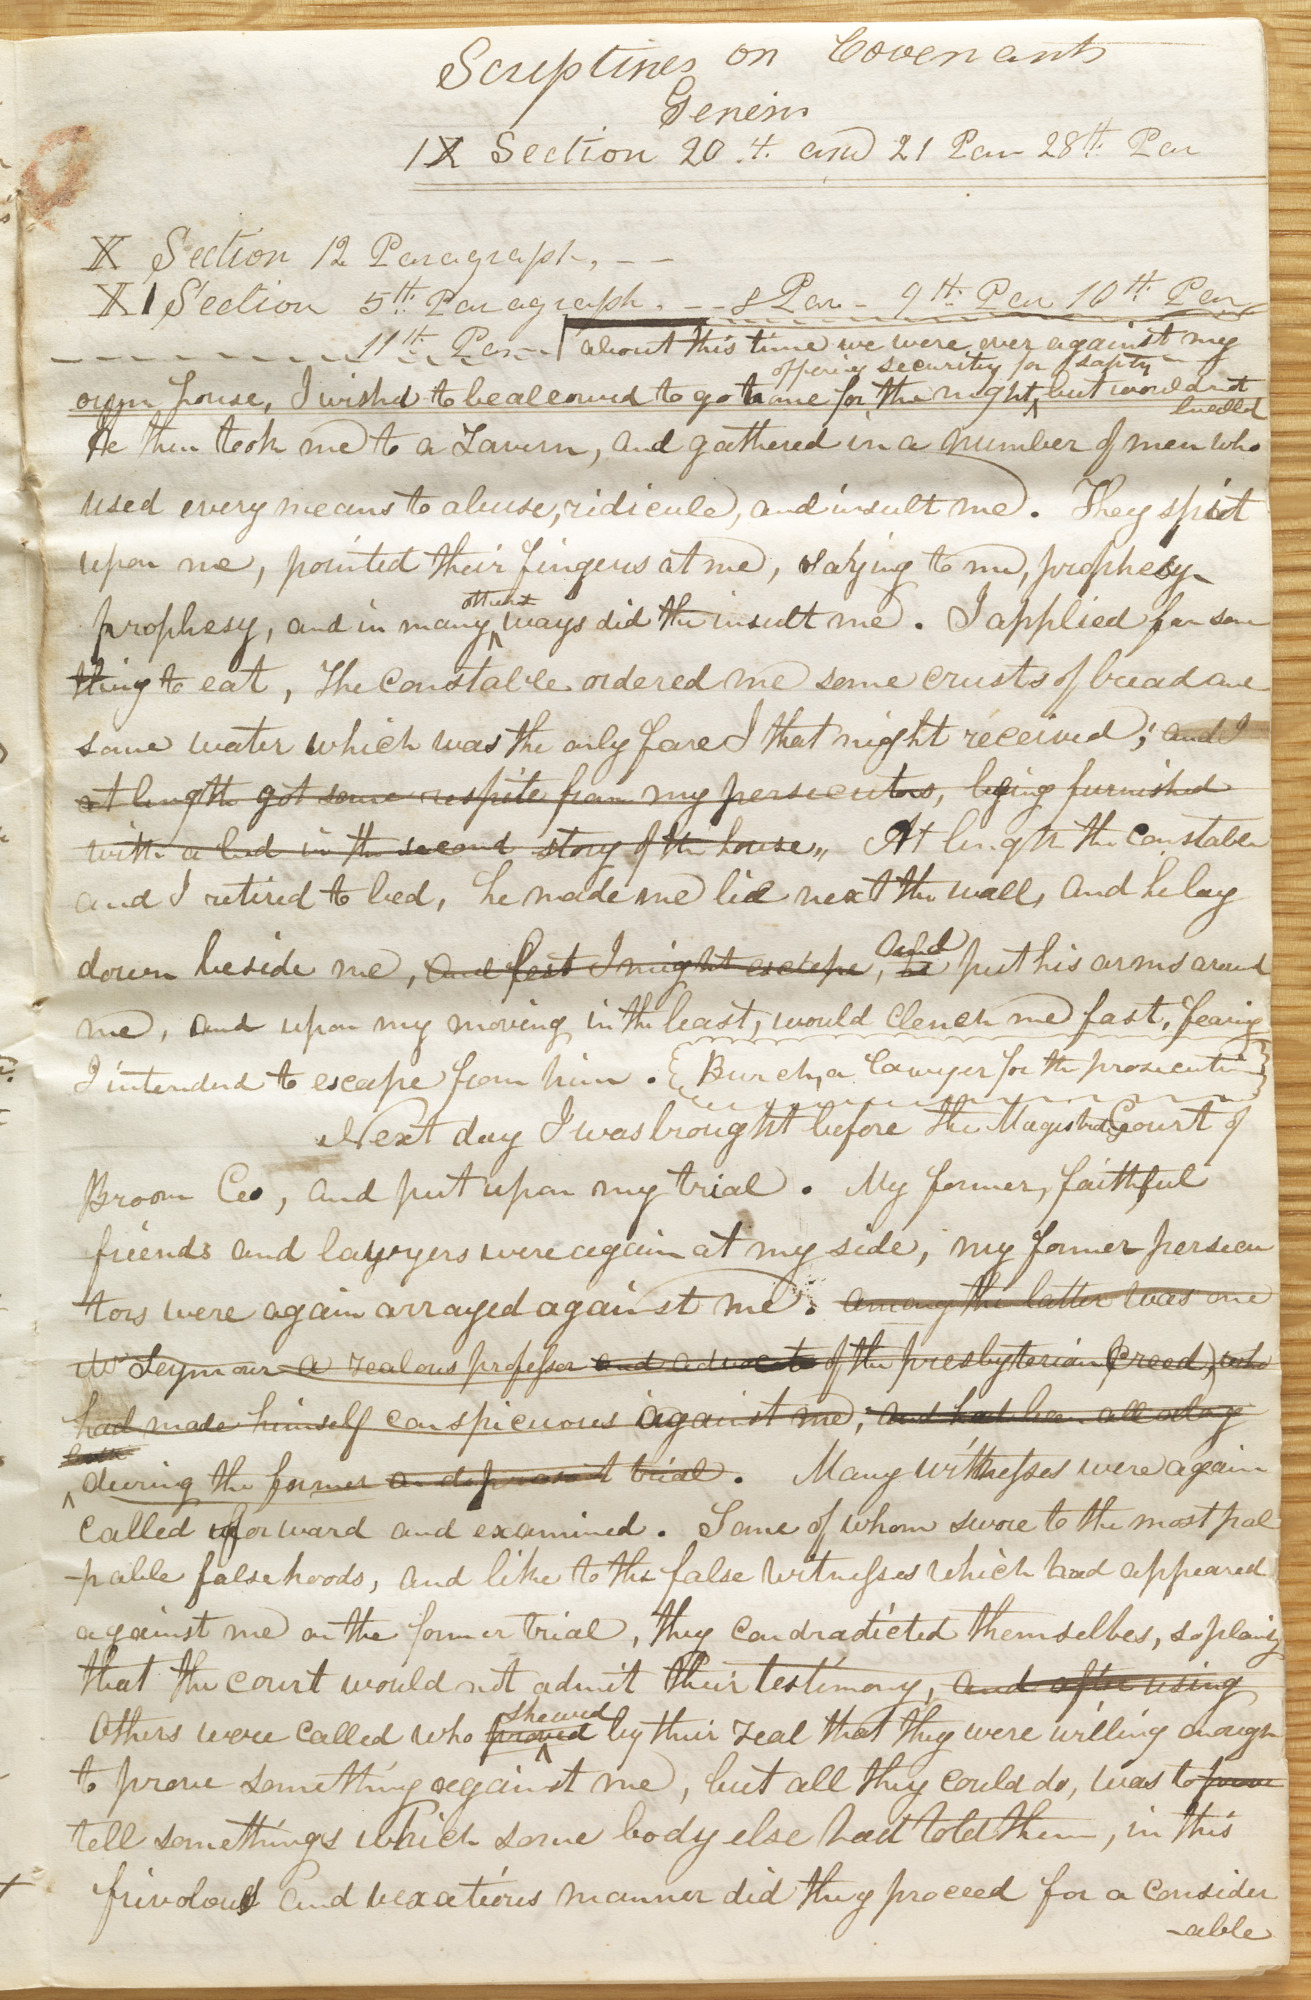 Scriptures on Covenants
Genesis
IX Section 20. 4. and 21 Par 28th. Par
X Section 12 Paragraph, - -
XI Section 5th. Paragraph. -- 8 Par - 9th. Par 10th Par
11th Par - about this time we were over against my
offering security for safety
own house, I wishd to be allowed to go home for the night, but would not
He then took me to a Tavern, and gathered in a number of men who
used every means to abuse, ridicule, and insult me. They spit
upon me, pointed their fingers at me, saying to me, prophesy
others
prophesy, and in many ways did the insult me. I applied for some
thing to eat, The constable ordered me some crusts of bread and
some water which was the only fare I that night received; and I
at length got some respite from my persecutors, being furnished
with a bed in the second story of the house,, At length the constable
and I retired to bed, he made me lie next the wall, and he lay
and
down beside me, and lest I might escape, he put his arms around
me, and upon my moving in the least, would clench me fast, fearing
I intended to escape from him. Burch, a lawyer for the prosecution
Next day I was brought before the Magistrates Court of
Broom Co, and put upon my trial. My former, faithful
friends and lawyers were again at my side, my former persecu
tors were again arrayed against me. among the latter was one
Mr Seymour a zealous professor and advocate of the presbyterian Creed, who
had made himself conspicuous against me, and had been all along
both
during the former and present trial. Many witnesses were again
called forward and examined. Some of whom swore to the most pal
-pable falsehoods, and like to the false witnesses which had appeared
against me on the former trial, they condradicted themselves, so plainly
that the court would not admit their testimony, and after using
shewed
Others were called who proved by their zeal that they were willing enough
to prove something against me, but all they could do, was to prove
tell somethings which some body else had told them, in this
frivolous and vexatious manner did they proceed for a consider
-able